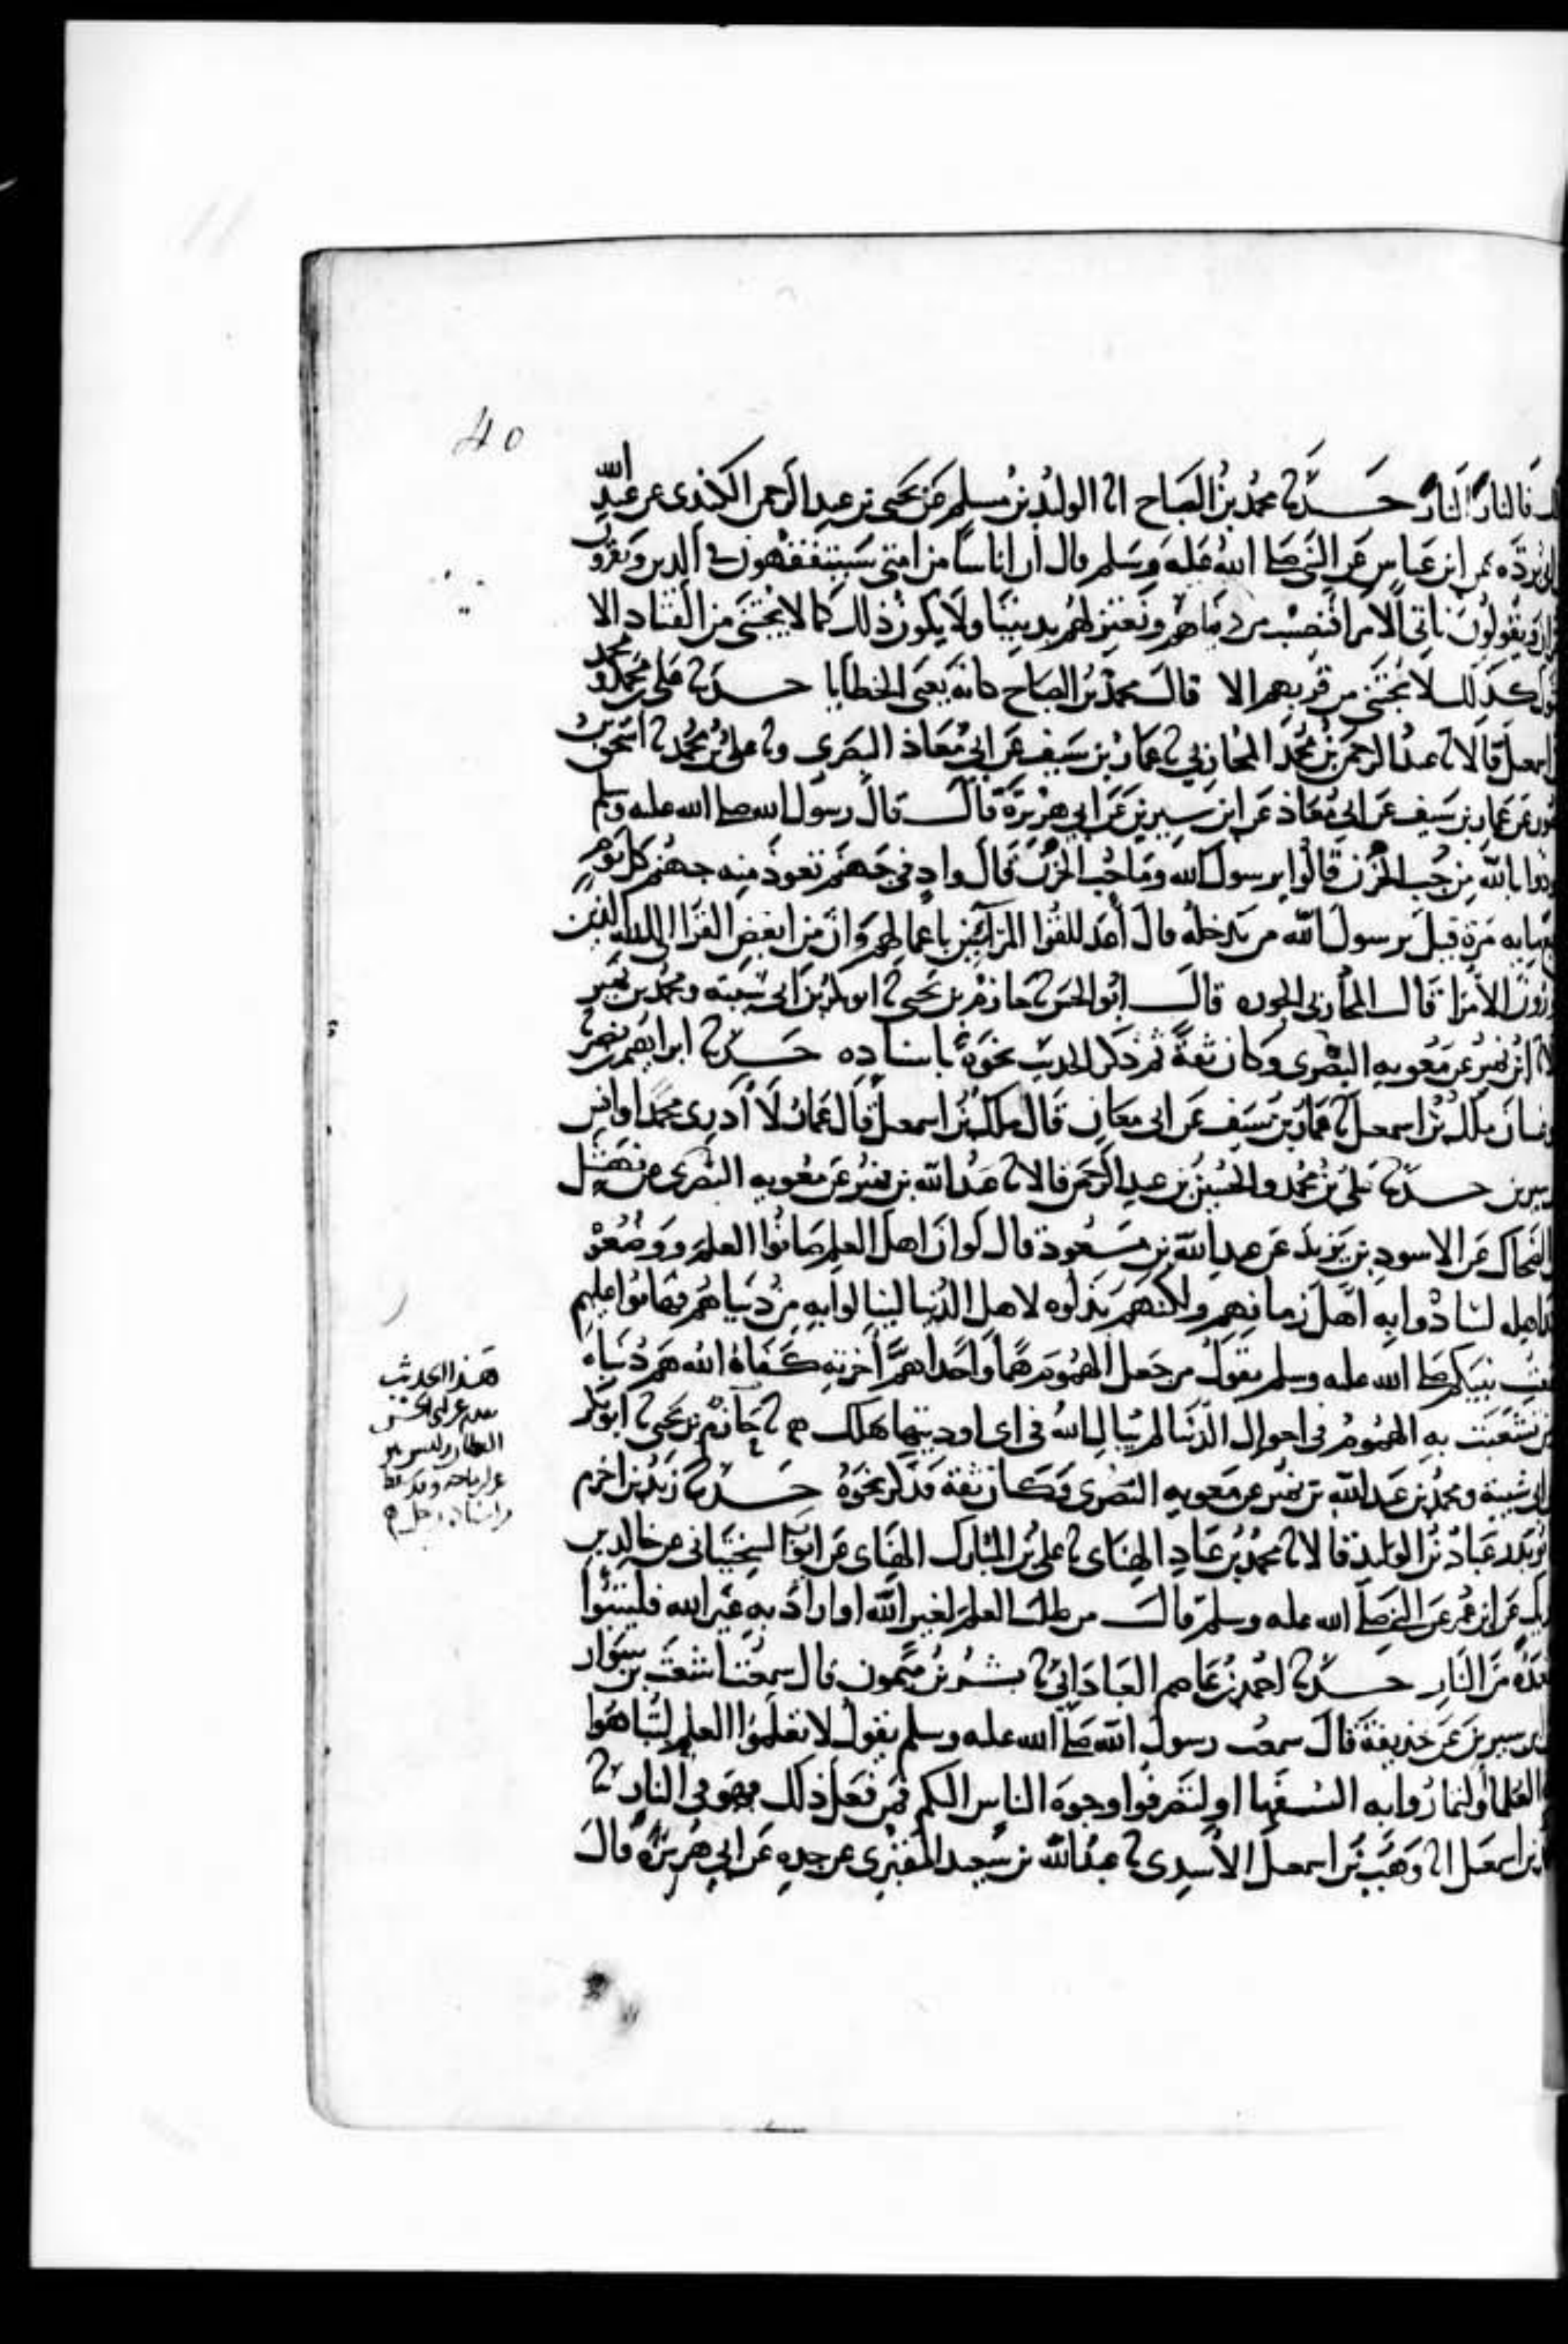 40
فالنار النار حدثنا محمد بن الصباح انا الوليد بن مسلم عن يحيى بن عبد الرحمن الكندى عن عبيد الله
ابى برده عن ابن عباس عن النبى صلى الله عليه وسلم قال ان اناسا من امتى سيتفقهون فى الدين ويقرون
ويقولون ناتى الامرا فنصيب من دنياهم ونعتزلهم بديننا ولا يكون ذلك كما لا يجتنى من القتاد الا
كذلك لا يجتنى من قربهم الا قال محمد بن الصباح كانه يعنى الخطايا حدثنا على بن محمد ومحمد
اسمعيل قالا نا عبد الرحمن بن محمد المحاربى نا عمار بن سيف عن ابى معاذ البصرى ونا على بن محمد نا اسحق بن
عن عمار بن سيف عن ابى معاذ عن ابن سيرين عن ابى هريرة قال قال رسول الله صلى الله عليه وسلم
بالله من جب الحزن قالوا يرسول الله وما جب الحزن قال واد فى جهنم تعوذ منه جهنم كل يوم
مرة قيل يرسول الله من يدخله قال أعد للقرا المرآئين باعمالهم وان من ابغض القرا الى الله الذين
الأمرا قال المحاربى الجوره قال ابو الحسن نا حازم بن يحيى نا ابو بكر بن ابى شيبة ومحمد بن نمير
ابن نمير عن معويه البصرى وكان ثقة ثم ذكر الحديث نحوه باسناده حدثنا ابراهيم بن نصر نا
ملك بن اسمعيل نا عمار بن سيف عن ابى معاذ قال ملك بن اسمعيل قال عمار لا أدرى محمد او انس
سيرين حدثنا على بن محمد والحسين بن عبد الرحمن قالا نا عبد الله بن نمير عن معويه النصرى عن نهشل
الضحاك عن الاسود بن يزيد عن عبد الله بن مسعود قال لو ان اهل العلم صانوا العلم ووضعوه
اهله لسادوا به اهل زمانهم ولكنهم بذلوه لاهل الدنيا لينالوا به من دنياهم فهانوا عليهم
نبيكم صلى الله عليه وسلم يقول من جعل الهموم هما واحدا هم اخرته كفاه الله هم دنياه
تشعبت به الهموم فى احوال الدنيا لم يبال الله فى اى اوديتها هلك نا حازم بن يحيى نا ابو بكر
ابى شيبة ومحمد بن عبد الله بن نمير عن معويه النصرى وكان ثقة فذكر نحوه حدثنا زيد بن اخزم
عباد بن الوليد قالا نا محمد بن عباد الهنائى نا على بن المبارك الهنائى عن ايوب السختيانى عن خالد بن
عن ابن عمر عن النبى صلى الله عليه وسلم قال من طلب العلم لغير الله او اراد به غير الله فليتبوا
من النار حدثنا احمد بن عاصم العبادانى نا بشر بن ميمون قال سمعت اشعث بن سوار
ابن سيرين عن حذيفة قال سمعت رسول الله صلى الله عليه وسلم يقول لا تعلموا العلم لتباهوا
العلما او لتماروا به السفها او لتصرفوا وجوه الناس اليكم فمن فعل ذلك فهو فى النار نا
بن اسمعيل انا وهب بن اسمعيل الأسدى نا عبد الله بن سعيد المقبرى عن جده عن ابى هريرة قال
هذا الحديث